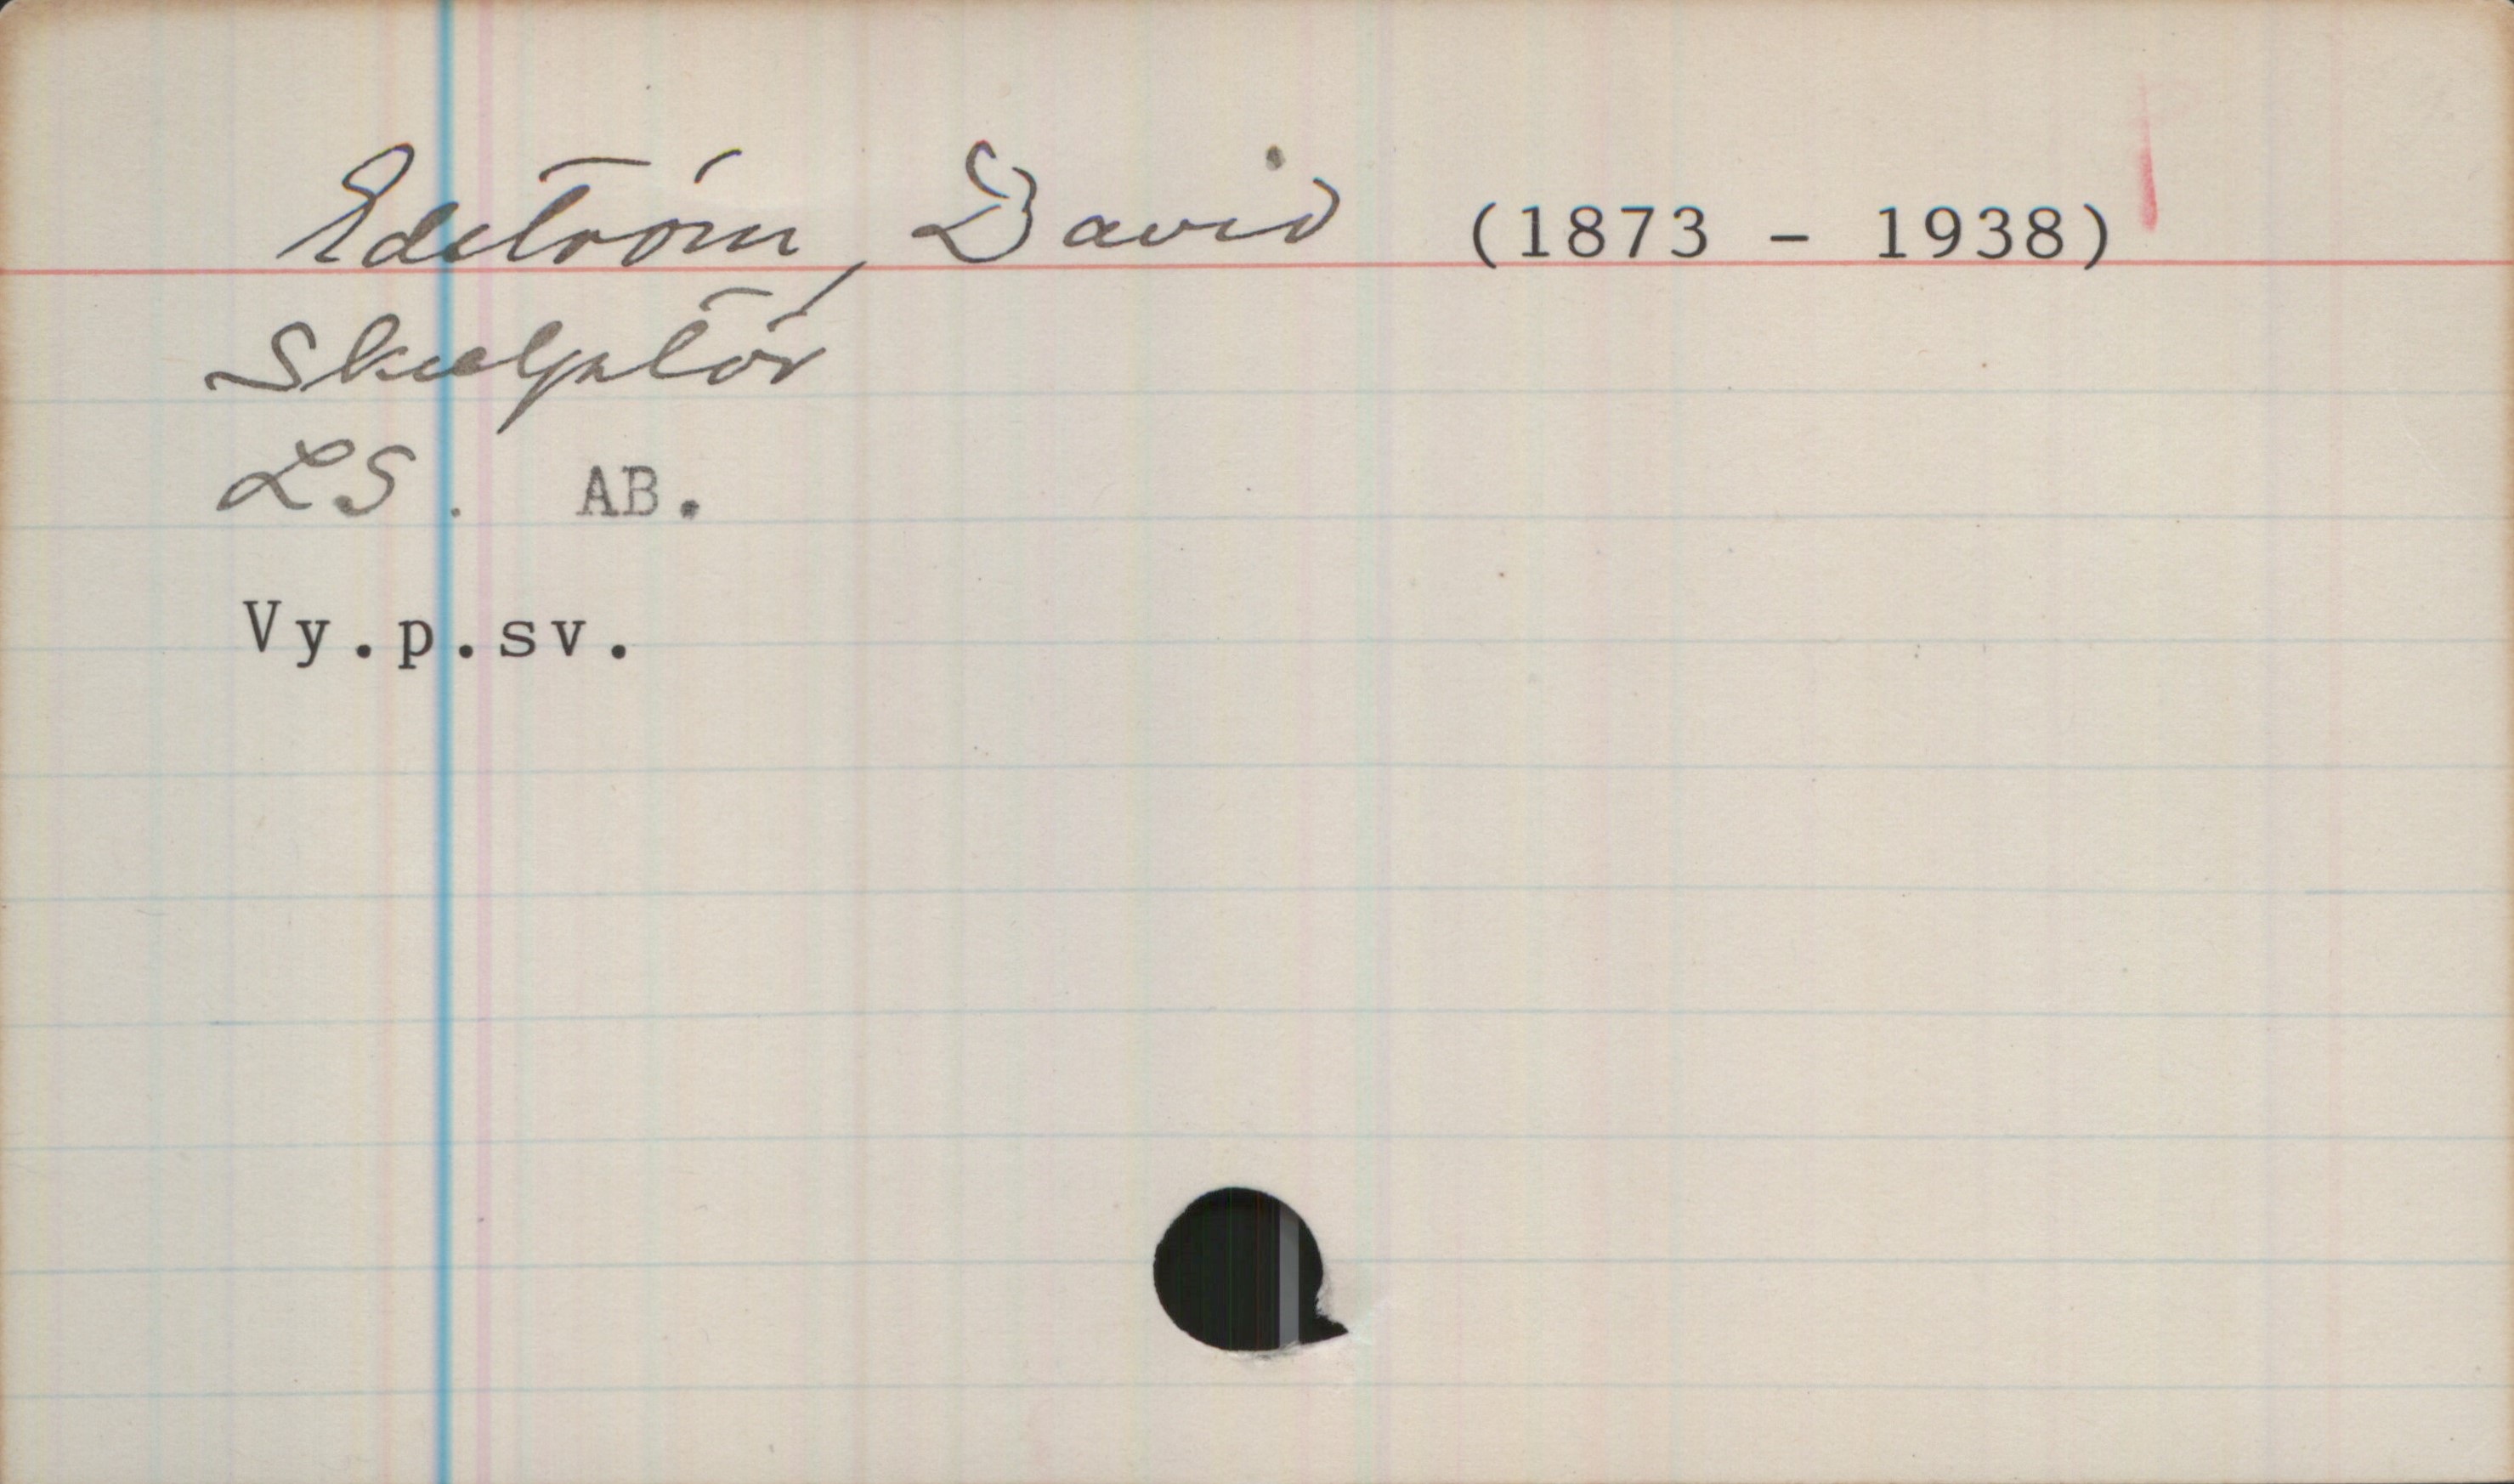 Edström, David (1873 - 1938)
Skulptör
LS. AB.
Vy.p.sv.